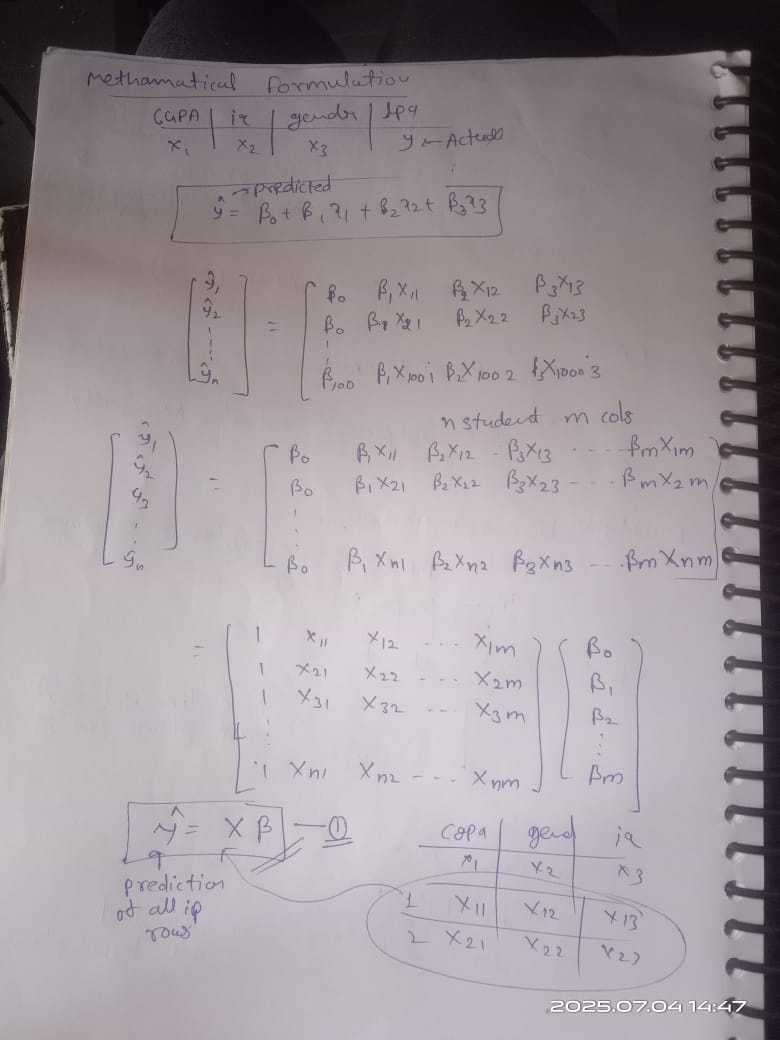 Methamatical Formulation
CGPA | iq | gender | lpa
x₁ | x₂ | x₃ | y ← Actual
→ predicted
ŷ = β₀ + β₁x₁ + β₂x₂ + β₃x₃
ŷ₁ β₀ β₁X₁₁ β₂X₁₂ β₃X₁₃
ŷ₂ = β₀ β₁X₂₁ β₂X₂₂ β₃X₂₃
ŷₙ β₁₀₀ β₁X₁₀₀₁ β₂X₁₀₀₂ β₃X₁₀₀₀3
n student m cols
ŷ₁ β₀ β₁X₁₁ β₂X₁₂ - β₃X₁₃ ... βmX₁m
ŷ₂ = β₀ β₁X₂₁ β₂X₂₂ β₃X₂₃ --- βmX₂m
y₃
ŷₙ β₀ β₁Xn₁ β₂Xn₂ β₃Xn₃ --- βmXnm
= 1 X₁₁ X₁₂ ... X₁m β₀
1 X₂₁ X₂₂ ... X₂m β₁
1 X₃₁ X₃₂ ... X₃m β₂
1 Xn₁ Xn₂ ---- Xnm βm
ŷ = Xβ —①
prediction
of all ip
rows
CGPA | gend | iq
x₁ | x₂ | x₃
1 X₁₁ | X₁₂ | X₁₃
2 X₂₁ | X₂₂ | X₂₃
2025.07.04 14:47